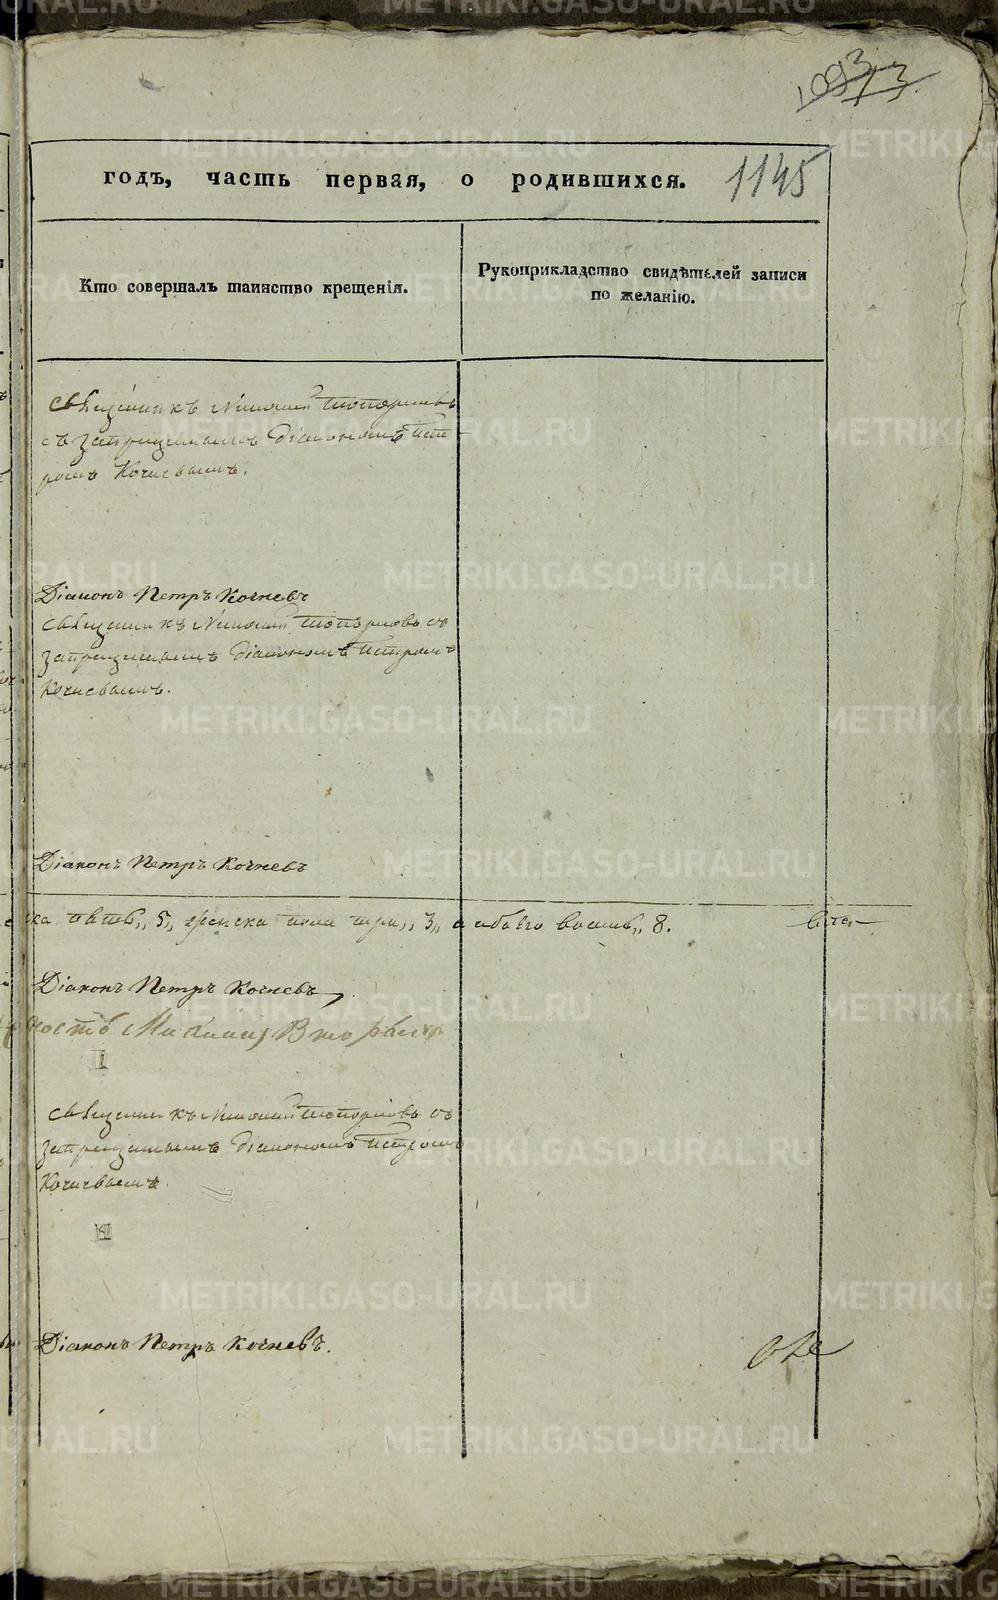 1093
13
годъ, часть первая, о родившихся.
1145
Кто совершалъ таинство крещенія.
Рукоприкладство свидѣтелей записи
по желанію.
Священникъ Николай Топорковъ
съ запрещеннымъ діакономъ Пет-
ромъ Кочневымъ.
Діаконъ Петръ Кочневъ
Священникъ Николай Топорковъ съ
запрещеннымъ діакономъ Петромъ
Кочневымъ.
Діаконъ Петръ Кочневъ
пять„ 5„ женска пола три„ 3„ а обоего восмь„ 8.
Діаконъ Петръ Кочневъ
Священникъ Николай Топорковъ съ
запрещеннымъ діакономъ Петромъ
Кочневымъ.
Діаконъ Петръ Кочневъ.
METRIKI.GASO-URAL.RU